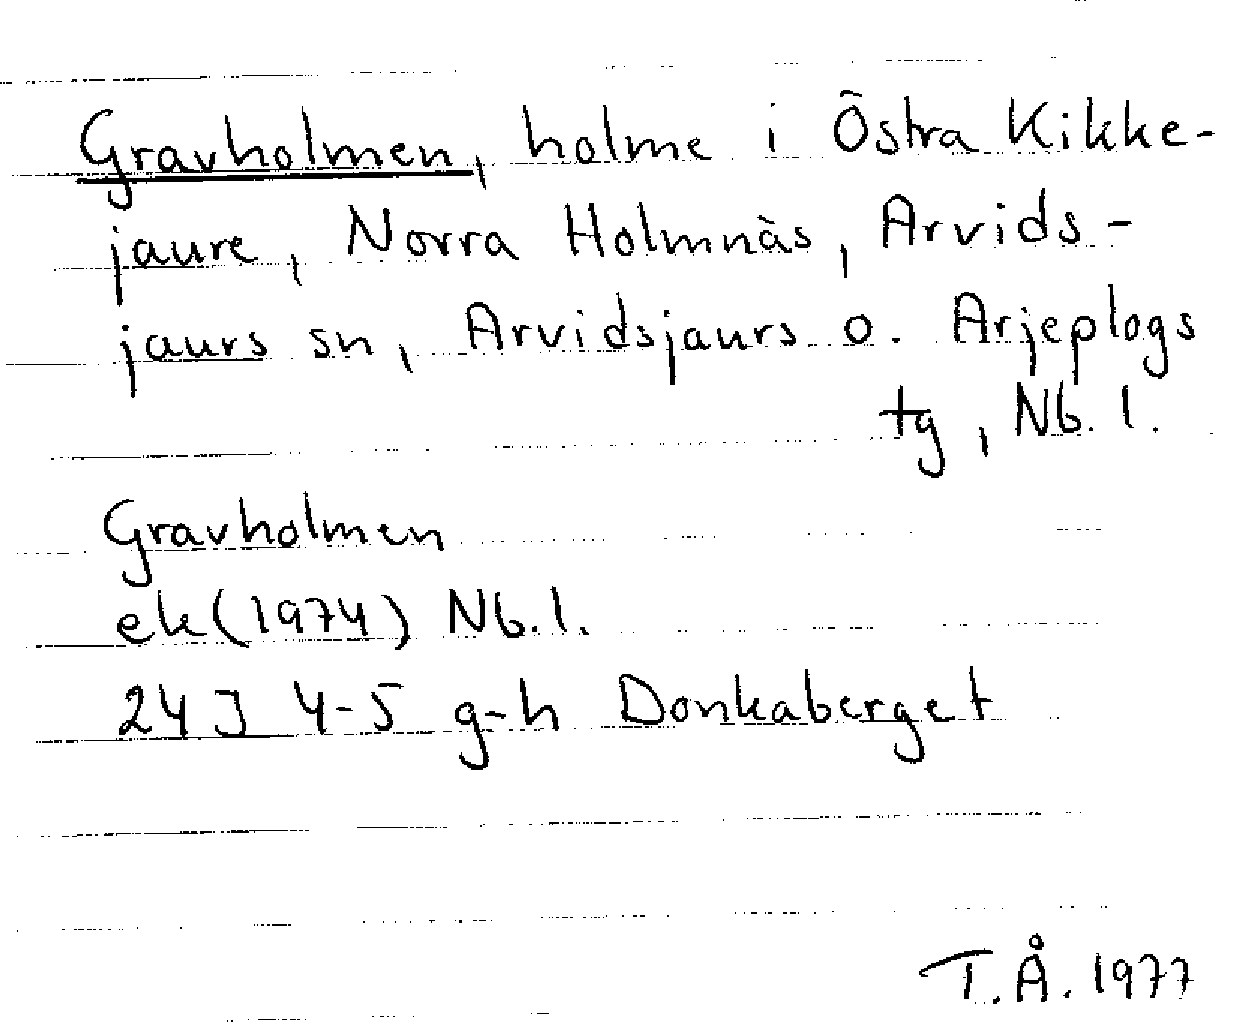 Gravholmen, holme i Östra Kikke-
jaure, Norra Holmnäs, Arvids-
jaurs sn, Arvidsjaurs o. Arjeplogs
tg, Nb. l.
Gravholmen
ek (1974) Nb. l.
24 J 4-5 g-h Donkaberget
T.Å. 1977